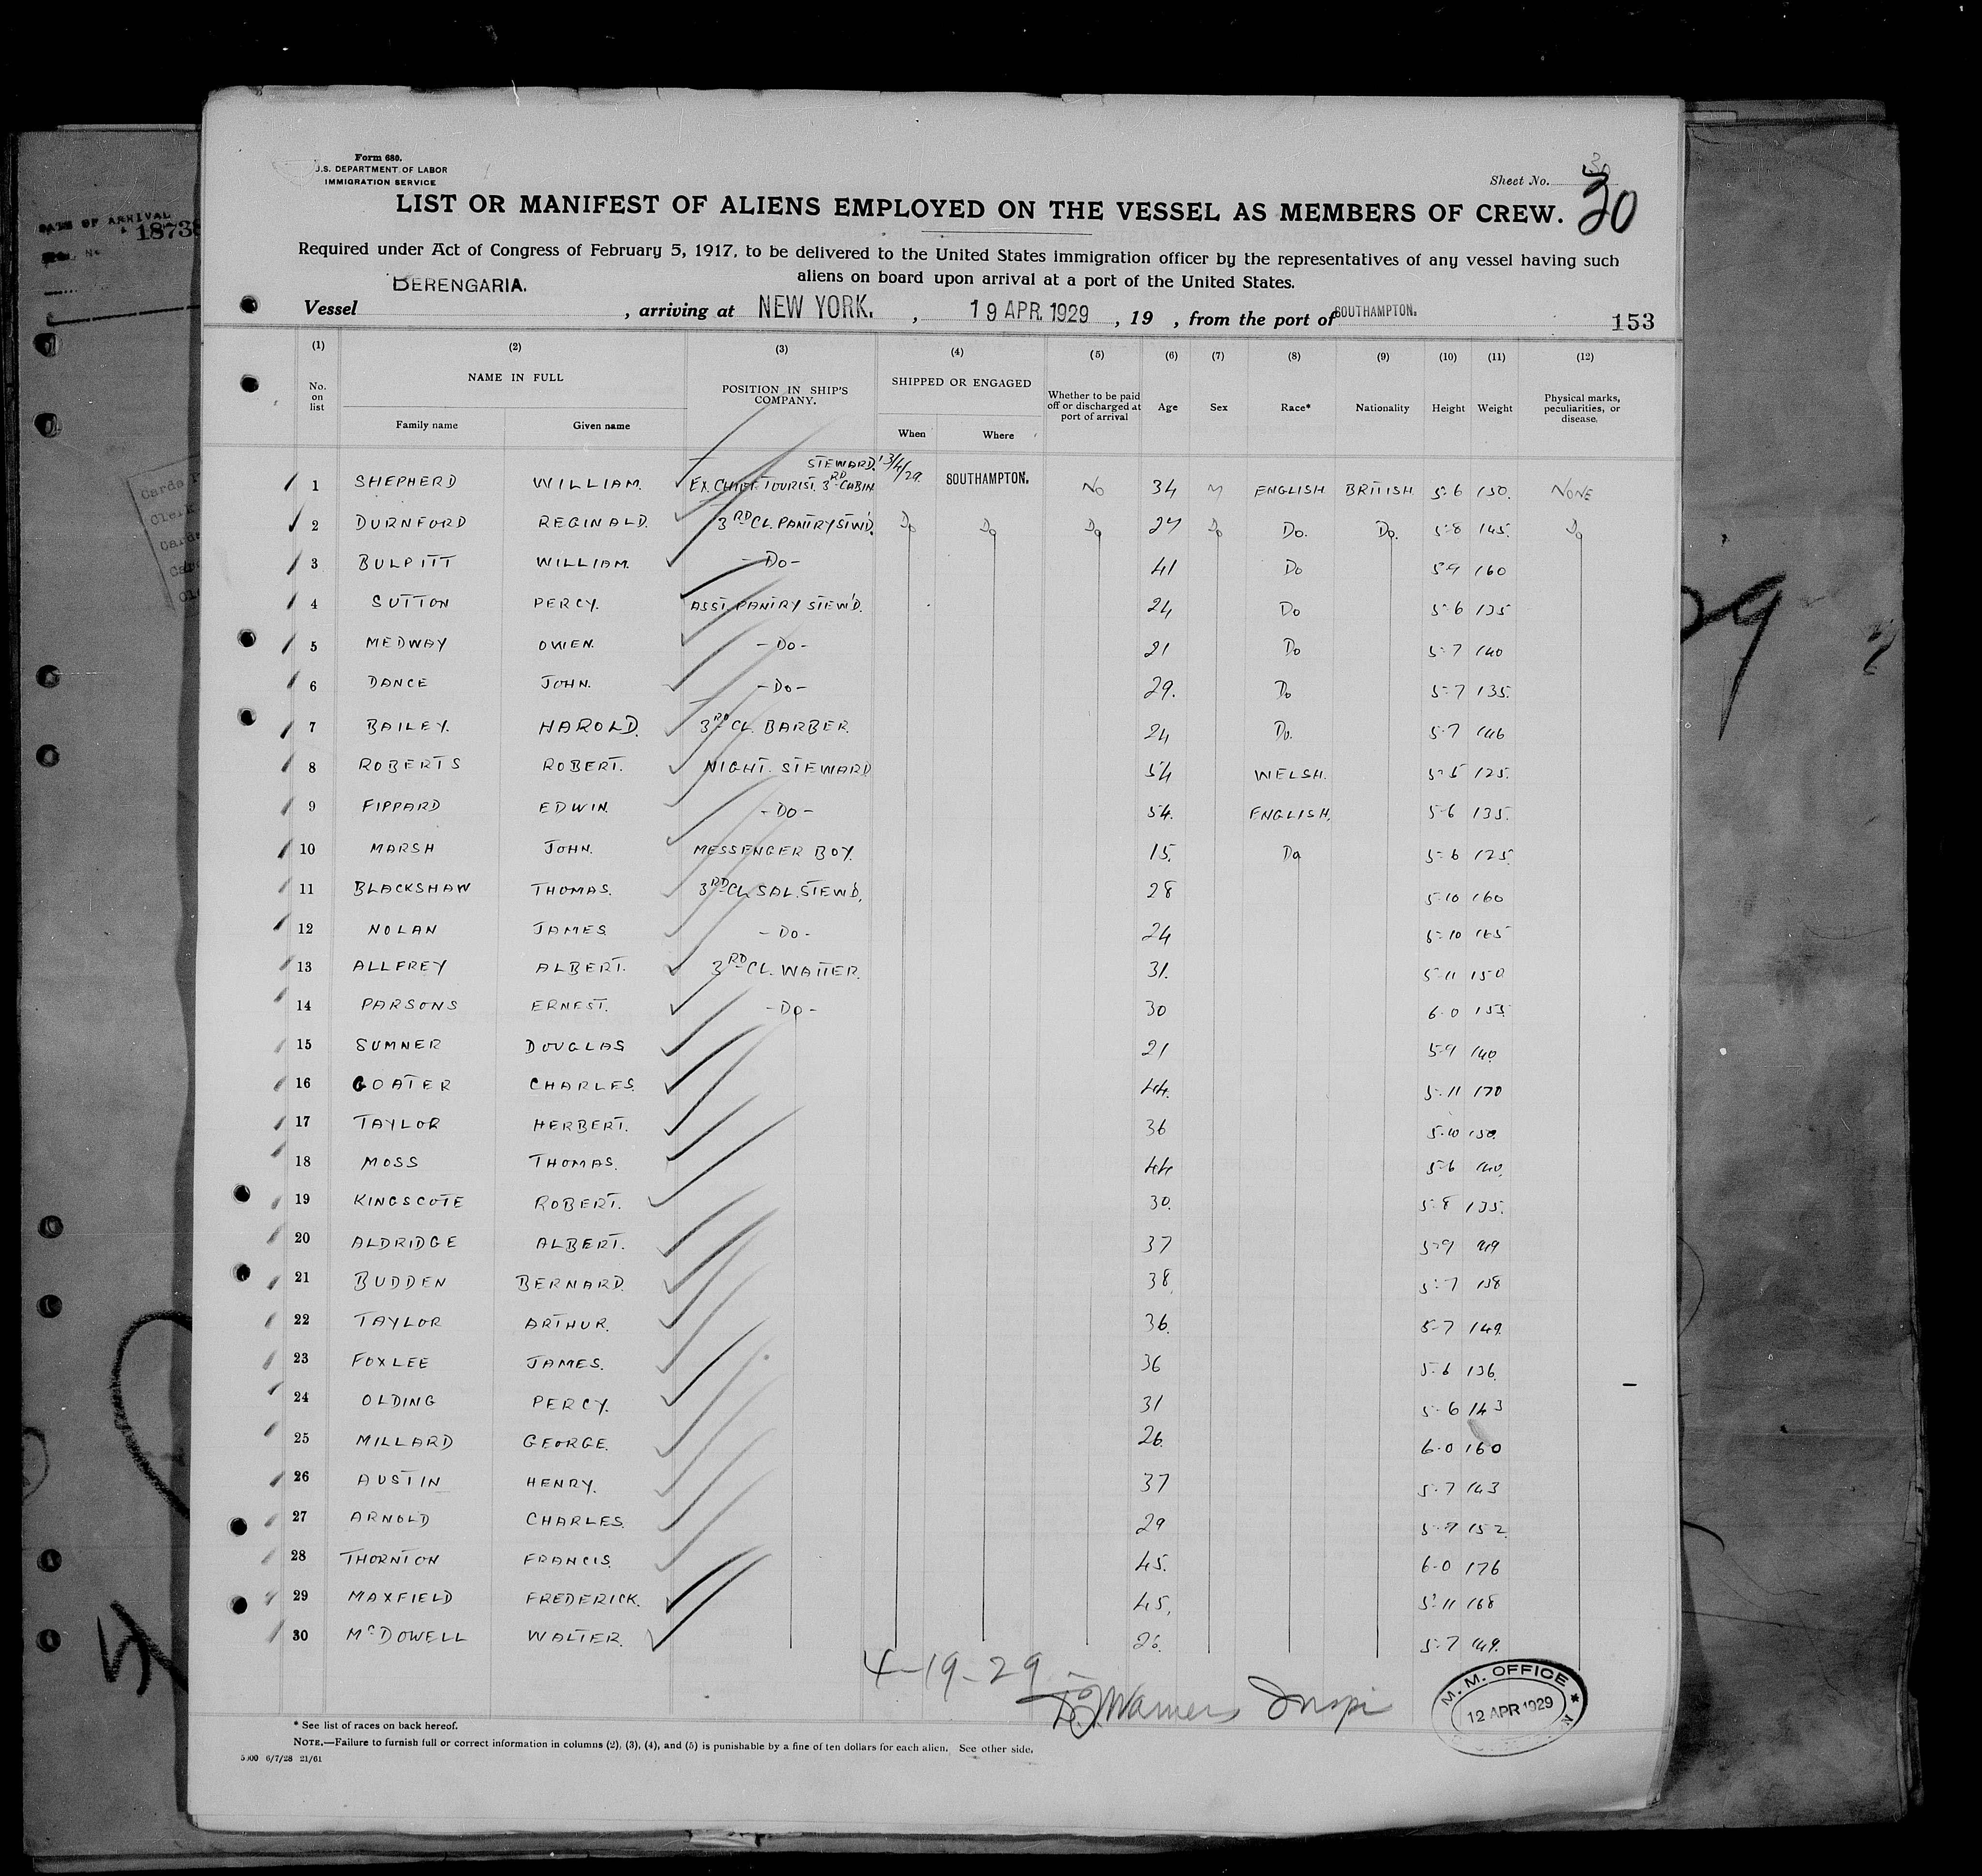 Form 680.
U.S. DEPARTMENT OF LABOR
IMMIGRATION SERVICE
Sheet No. 30
30
LIST OR MANIFEST OF ALIENS EMPLOYED ON THE VESSEL AS MEMBERS OF CREW.
Required under Act of Congress of February 5, 1917, to be delivered to the United States immigration officer by the representatives of any vessel having such
aliens on board upon arrival at a port of the United States.
Vessel BERENGARIA. , arriving at NEW YORK. , 19 APR. 1929 , 19 , from the port of SOUTHAMPTON. 153
(1) (2) (3) (4) (5) (6) (7) (8) (9) (10) (11) (12)
No. on list NAME IN FULL POSITION IN SHIP'S COMPANY. SHIPPED OR ENGAGED Whether to be paid off or discharged at port of arrival Age Sex Race* Nationality Height Weight Physical marks, peculiarities, or disease.
Family name Given name When Where
1 SHEPHERD WILLIAM. EX. CHIEF TOURIST. 3RD CABIN STEWARD. 13/4/29. SOUTHAMPTON. NO 34 M ENGLISH BRITISH 5-6 150. NONE
2 DURNFORD REGINALD. 3RD CL. PANTRY STWD. Do Do Do 27 Do Do. Do. 5-8 145. Do
3 BULPITT WILLIAM. -Do- 41 Do 5-9 160
4 SUTTON PERCY. ASST. PANTRY STEW'D. 24 Do 5-6 135
5 MEDWAY OWEN. -Do- 21 Do 5-7 140
6 DANCE JOHN. -Do- 29. Do 5-7 135.
7 BAILEY. HAROLD. 3RD CL. BARBER. 24 Do. 5-7 146
8 ROBERTS ROBERT. NIGHT. STEWARD 54 WELSH. 5-5 125.
9 FIPPARD EDWIN. -Do- 54. ENGLISH. 5-6 135.
10 MARSH JOHN. MESSENGER BOY. 15. Do 5-6 125.
11 BLACKSHAW THOMAS. 3RD CL. SAL. STEW'D. 28 5-10 160
12 NOLAN JAMES -Do- 24 5-10 165
13 ALLFREY ALBERT. 3RD CL. WAITER. 31. 5-11 150
14 PARSONS ERNEST. -Do- 30 6-0 155.
15 SUMNER DOUGLAS 21 5-9 140.
16 GOATER CHARLES. 44. 5-11 170
17 TAYLOR HERBERT. 36 5-10 150.
18 MOSS THOMAS. 44 5-6 140.
19 KINGSCOTE ROBERT. 30. 5-8 135.
20 ALDRIDGE ALBERT. 37 5-9 149
21 BUDDEN BERNARD. 38. 5-7 158
22 TAYLOR ARTHUR. 36. 5-7 149.
23 FOXLEE JAMES. 36 5-6 136.
24 OLDING PERCY. 31 5-6 143
25 MILLARD GEORGE. 26. 6-0 160
26 AUSTIN HENRY. 37 5-7 143
27 ARNOLD CHARLES. 29 5-9 152.
28 THORNTON FRANCIS. 45. 6-0 176
29 MAXFIELD FREDERICK. 45. 5-11 168
30 McDOWELL WALTER. 26. 5-7 149.
4-19-29
Warner Insp
M. M. OFFICE
12 APR 1929
* See list of races on back hereof.
NOTE.—Failure to furnish full or correct information in columns (2), (3), (4), and (5) is punishable by a fine of ten dollars for each alien. See other side.
5000 6/7/28 21/61
DATE OF ARRIVAL
1873